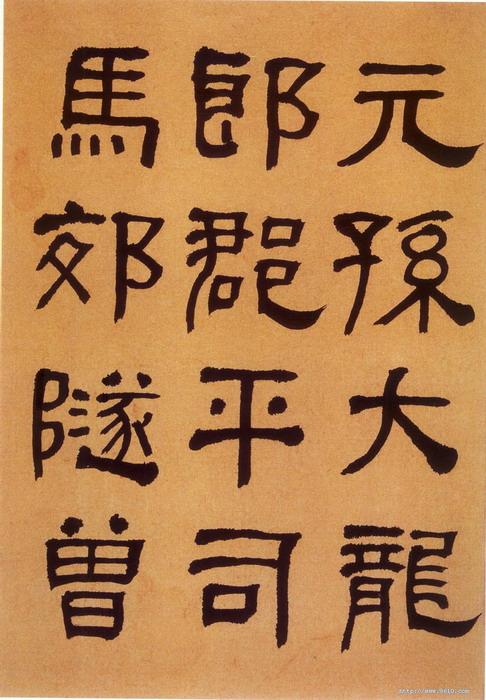 元孫大龍
郎郡平司
馬郊隧曾
http://www.9610.com